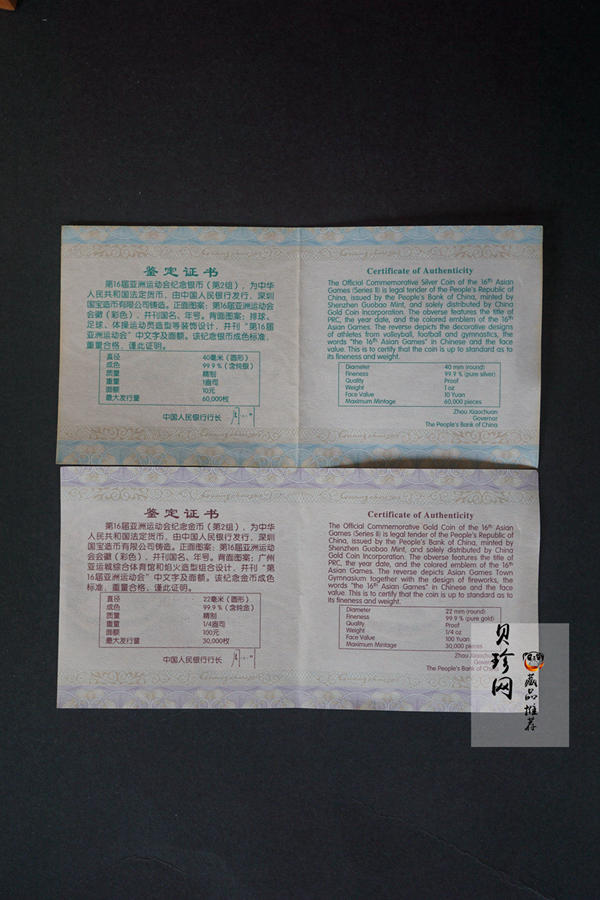 鉴定证书
第16届亚洲运动会纪念银币（第2组），为中华
人民共和国法定货币，由中国人民银行发行，深圳
国宝造币有限公司铸造。正面图案：第16届亚洲运动会
会徽（彩色），并刊国名、年号。背面图案：排球、
足球、体操运动员造型等装饰设计，并刊“第16届
亚洲运动会”中文字及面额。该纪念银币成色标准，
重量合格，谨此证明。
直径 40毫米（圆形）
成色 99.9％（含纯银）
质量 精制
重量 1盎司
面额 10元
最大发行量 60,000枚
中国人民银行行长
Certificate of Authenticity
The Official Commemorative Silver Coin of the 16th Asian
Games (Series II) is legal tender of the People's Republic of
China, issued by the People's Bank of China, minted by
Shenzhen Guobao Mint, and solely distributed by China
Gold Coin Incorporation. The obverse features the title of
PRC, the year date, and the colored emblem of the 16th
Asian Games. The reverse depicts the decorative designs
of athletes from volleyball, football and gymnastics, the
words "the 16th Asian Games" in Chinese and the face
value. This is to certify that the coin is up to standard as to
its fineness and weight.
Diameter 40 mm (round)
Fineness 99.9 % (pure silver)
Quality Proof
Weight 1 oz
Face Value 10 Yuan
Maximum Mintage 60,000 pieces
Zhou Xiaochuan
Governor
The People's Bank of China
鉴定证书
第16届亚洲运动会纪念金币（第2组），为中华
人民共和国法定货币，由中国人民银行发行，深圳
国宝造币有限公司铸造。正面图案：第16届亚洲运动会
会徽（彩色），并刊国名、年号。背面图案：广州
亚运城综合体育馆和焰火造型组合设计，并刊“第
16届亚洲运动会”中文字及面额。该纪念金币成色
标准，重量合格，谨此证明。
直径 22毫米（圆形）
成色 99.9％（含纯金）
质量 精制
重量 1/4盎司
面额 100元
最大发行量 30,000枚
中国人民银行行长
Certificate of Authenticity
The Official Commemorative Gold Coin of the 16th Asian
Games (Series II) is legal tender of the People's Republic of
China, issued by the People's Bank of China, minted by
Shenzhen Guobao Mint, and solely distributed by China
Gold Coin Incorporation. The obverse features the title of
PRC, the year date, and the colored emblem of the 16th
Asian Games. The reverse depicts Asian Games Town
Gymnasium together with the design of fireworks, the
words "the 16th Asian Games" in Chinese and the face
value. This is to certify that the coin is up to standard as to
its fineness and weight.
Diameter 22 mm (round)
Fineness 99.9 % (pure gold)
Quality Proof
Weight 1/4 oz
Face Value 100 Yuan
Maximum Mintage 30,000 pieces
Zhou Xiaochuan
Governor
The People's Ba
贝珍网
藏品推荐